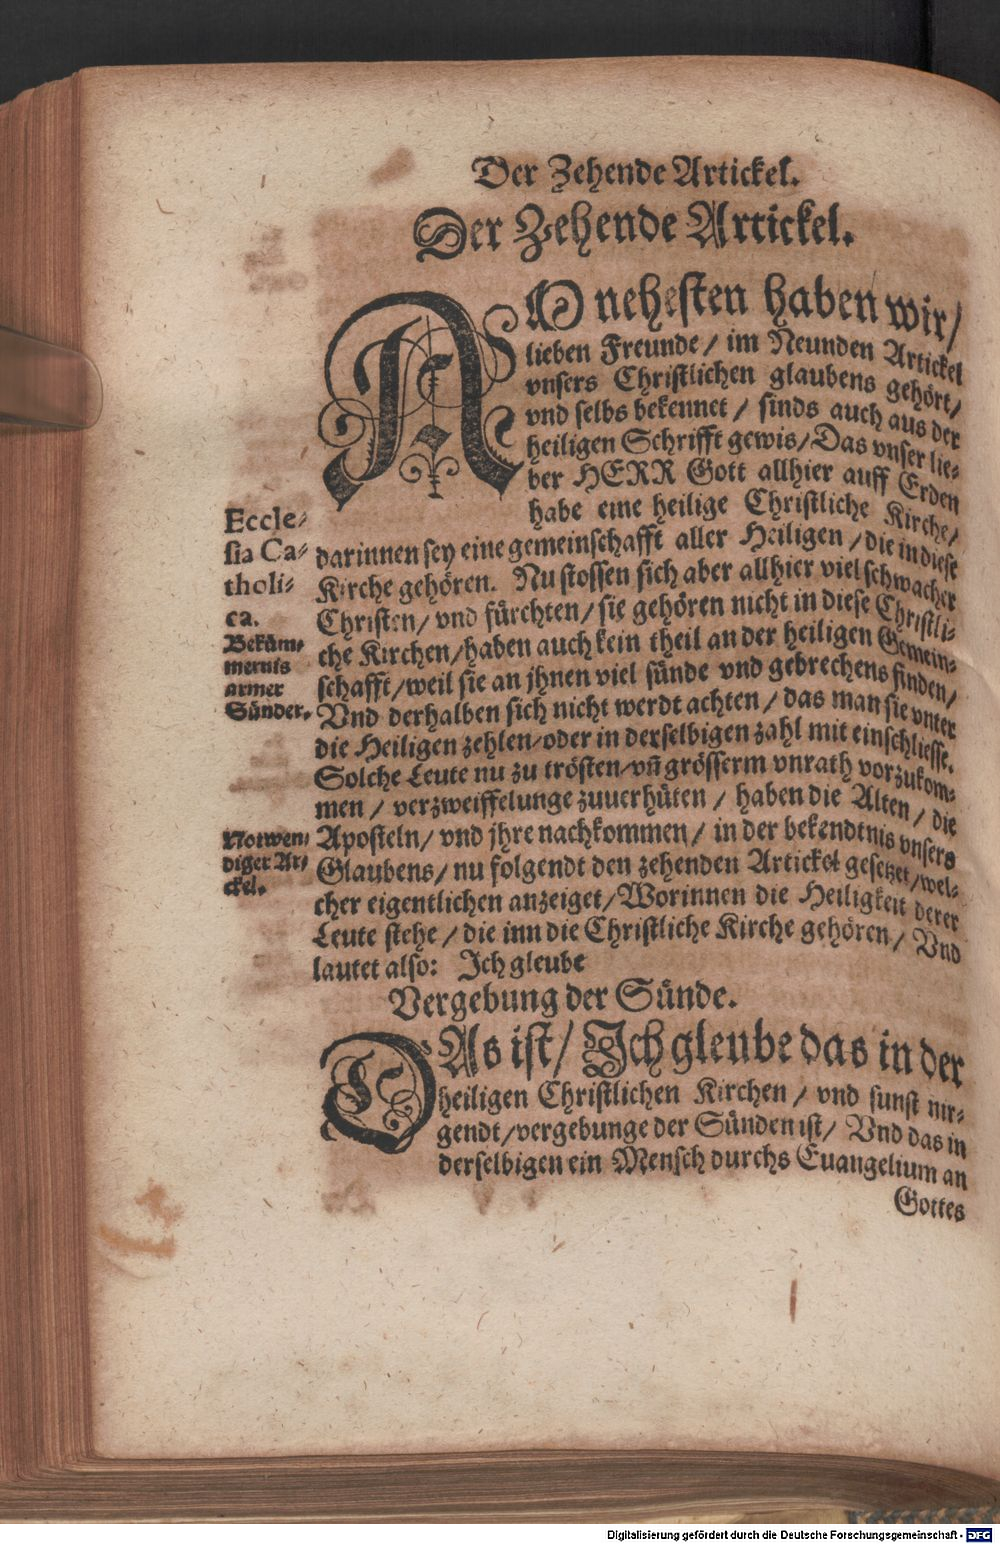 Der Zehende Artickel.
Der Zehende Artickel.
AM nehesten haben wir/
lieben Freunde / im Neunden Artickel
vnsers Christlichen glaubens gehört/
vnd selbs bekennet / sinds auch aus der
heiligen Schrifft gewis/Das vnser lie-
ber HERR Gott allhier auff Erden
habe eine heilige Christliche Kirche/
darinnen sey eine gemeinschafft aller Heiligen / die in diese
Kirche gehören. Nu stossen sich aber allhier viel schwacher
Christen/ vnd fürchten/ sie gehören nicht in diese Christli-
che Kirchen/haben auch kein theil an der heiligen Gemein-
schafft/weil sie an jhnen viel sünde vnd gebrechens finden/
Vnd derhalben sich nicht werdt achten / das man sie vnter
die Heiligen zehlen/oder in derselbigen zahl mit einschliesse.
Solche Leute nu zu trösten/vñ grösserm vnrath vorzukom-
men / verzweiffelunge zuuerhüten / haben die Alten / die
Aposteln/ vnd jhre nachkommen / in der bekendtnis vnsers
Glaubens/ nu folgendt den zehenden Artickel gesetzet/wel-
cher eigentlichen anzeiget/Worinnen die Heiligkeit derer
Leute stehe / die inn die Christliche Kirche gehören/ Vnd
lautet also: Ich gleube
Vergebung der Sünde.
DAs ist/ Ich gleube das in der
heiligen Christlichen Kirchen / vnd sunst nir-
gendt/vergebunge der Sünden ist/ Vnd das in
derselbigen ein Mensch durchs Euangelium an
Gottes
Eccle-
sia Ca-
tholi-
ca.
Beküm-
mernis
armer
Sünder.
Notwen-
diger Ar-
ckel.
Digitalisierung gefördert durch die Deutsche Forschungsgemeinschaft - DFG